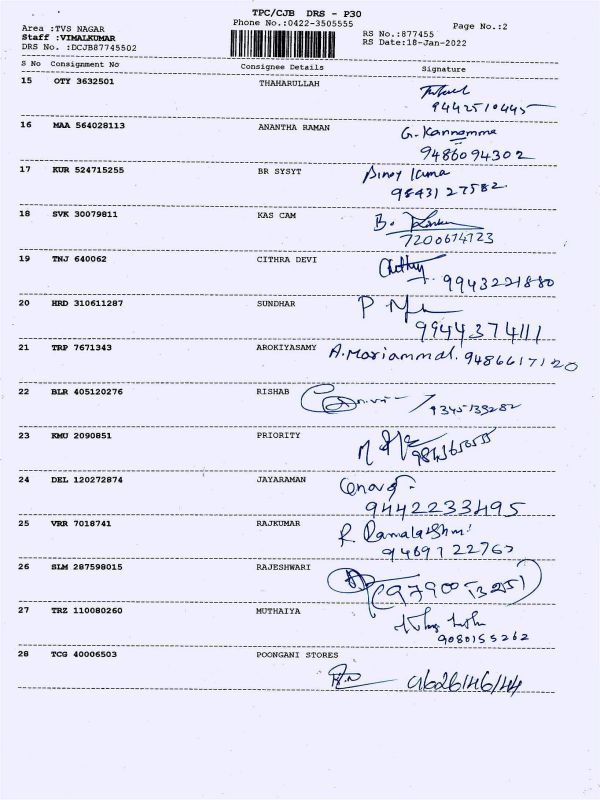 TPC/CJB DRS - P30
Area :TVS NAGAR Phone No.:0422-3505555 Page No.:2
Staff :VIMALKUMAR RS No.:877455
DRS No. :DCJB87745502 RS Date:18-Jan-2022
S No Consignment No Consignee Details Signature
15 OTY 3632501 THAHARULLAH
9442510445
16 MAA 564028113 ANANTHA RAMAN G. Kannamma
9486094302
17 KUR 524715255 BR SYSYT Binoy Kuma
9843127582
18 SVK 30079811 KAS CAM B.
7200674723
19 TNJ 640062 CITHRA DEVI
9943221880
20 HRD 310611287 SUNDHAR P.
9944374111
21 TRP 7671343 AROKIYASAMY A. Mariammal. 9486617120
22 BLR 405120276 RISHAB
23 KMU 2090851 PRIORITY M
24 DEL 120272874 JAYARAMAN
9442233495
25 VRR 7018741 RAJKUMAR R Ramalakshmi
26 SLM 287598015 RAJESHWARI
27 TRZ 110080260 MUTHAIYA
9080155262
28 TCG 40006503 POONGANI STORES
9626146144